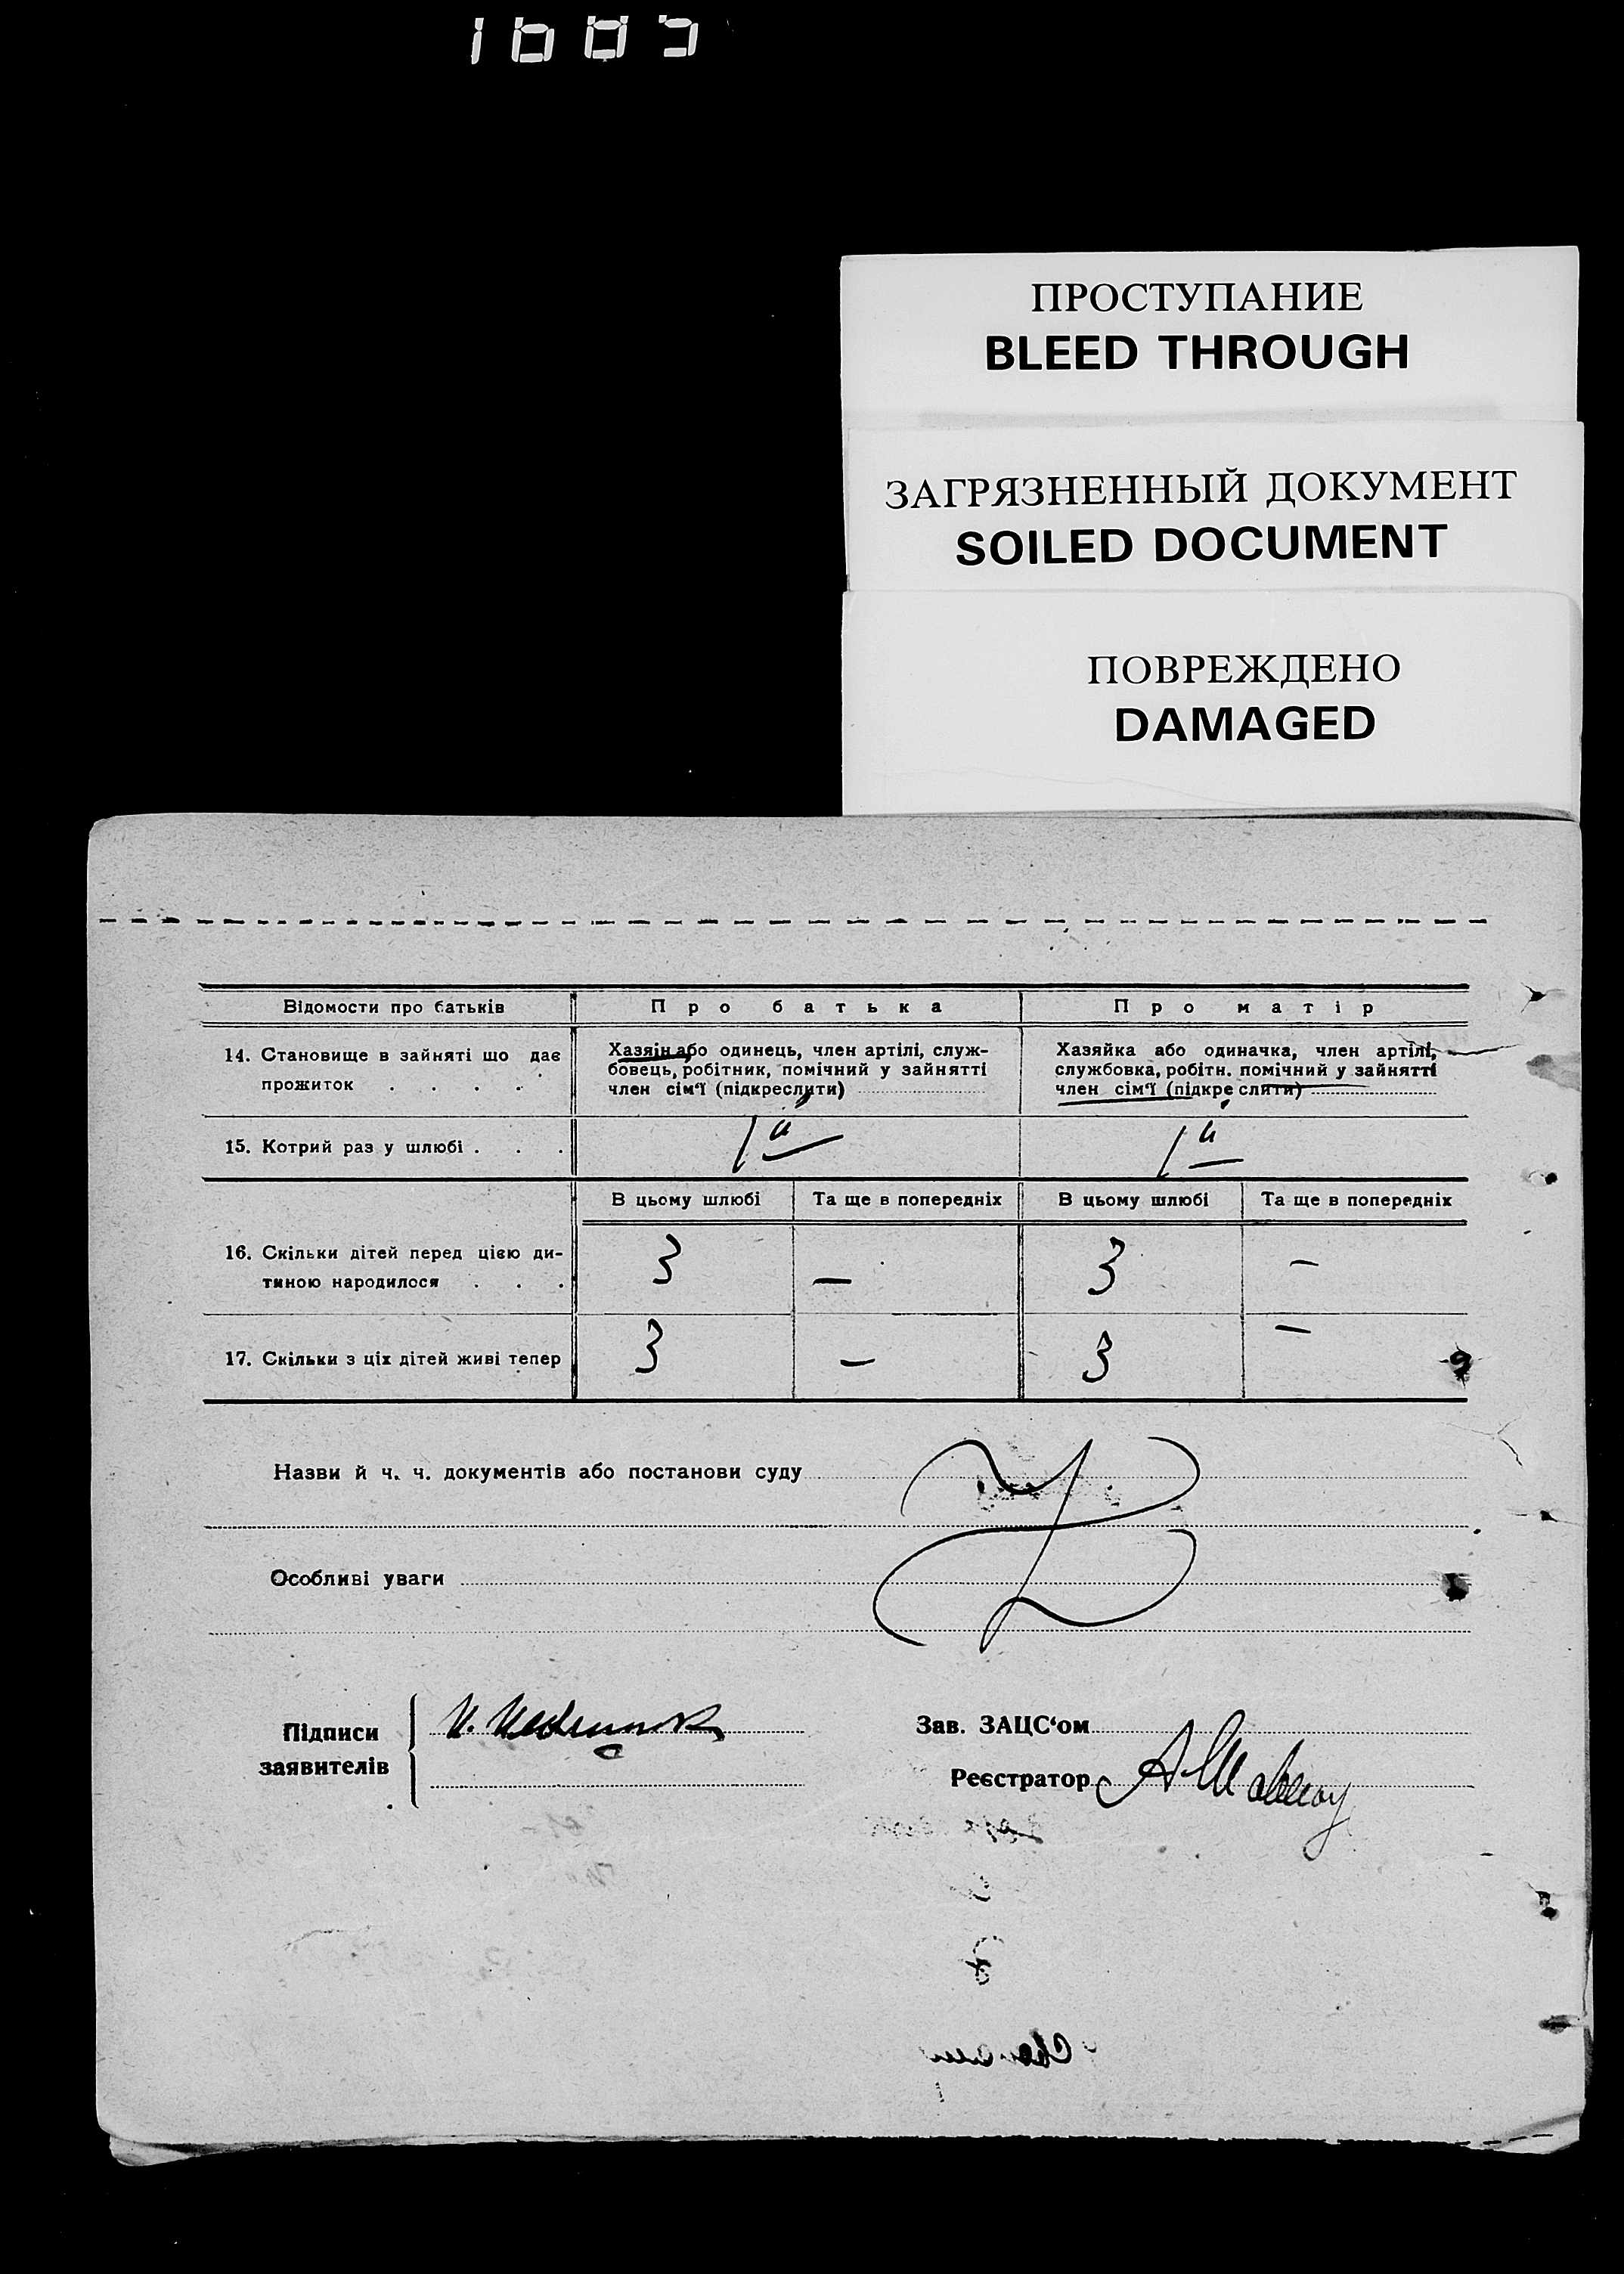 ПРОСТУПАНИЕ
BLEED THROUGH
ЗАГРЯЗНЕННЫЙ ДОКУМЕНТ
SOILED DOCUMENT
ПОВРЕЖДЕНО
DAMAGED
Відомости про батьків Про батька Про матір
14. Становище в зайняті що дає прожиток . . . .
Хазяїн або одинець, член артілі, служ-
бовець, робітник, помічний у зайнятті
член сім'ї (підкреслити)
Хазяйка або одиначка, член артілі,
службовка, робітн. помічний у зайнятті
член сім'ї (підкреслити)
15. Котрий раз у шлюбі . . . 1й 1й
В цьому шлюбі Та ще в попередніх В цьому шлюбі Та ще в попередніх
16. Скільки дітей перед цією ди-
тиною народилося . . . 3 — 3 —
17. Скільки з ціх дітей живі тепер 3 — 3 —
Назви й ч. ч. документів або постанови суду
Особливі уваги
Підписи
заявителів
Зав. ЗАЦС'ом
Реєстратор